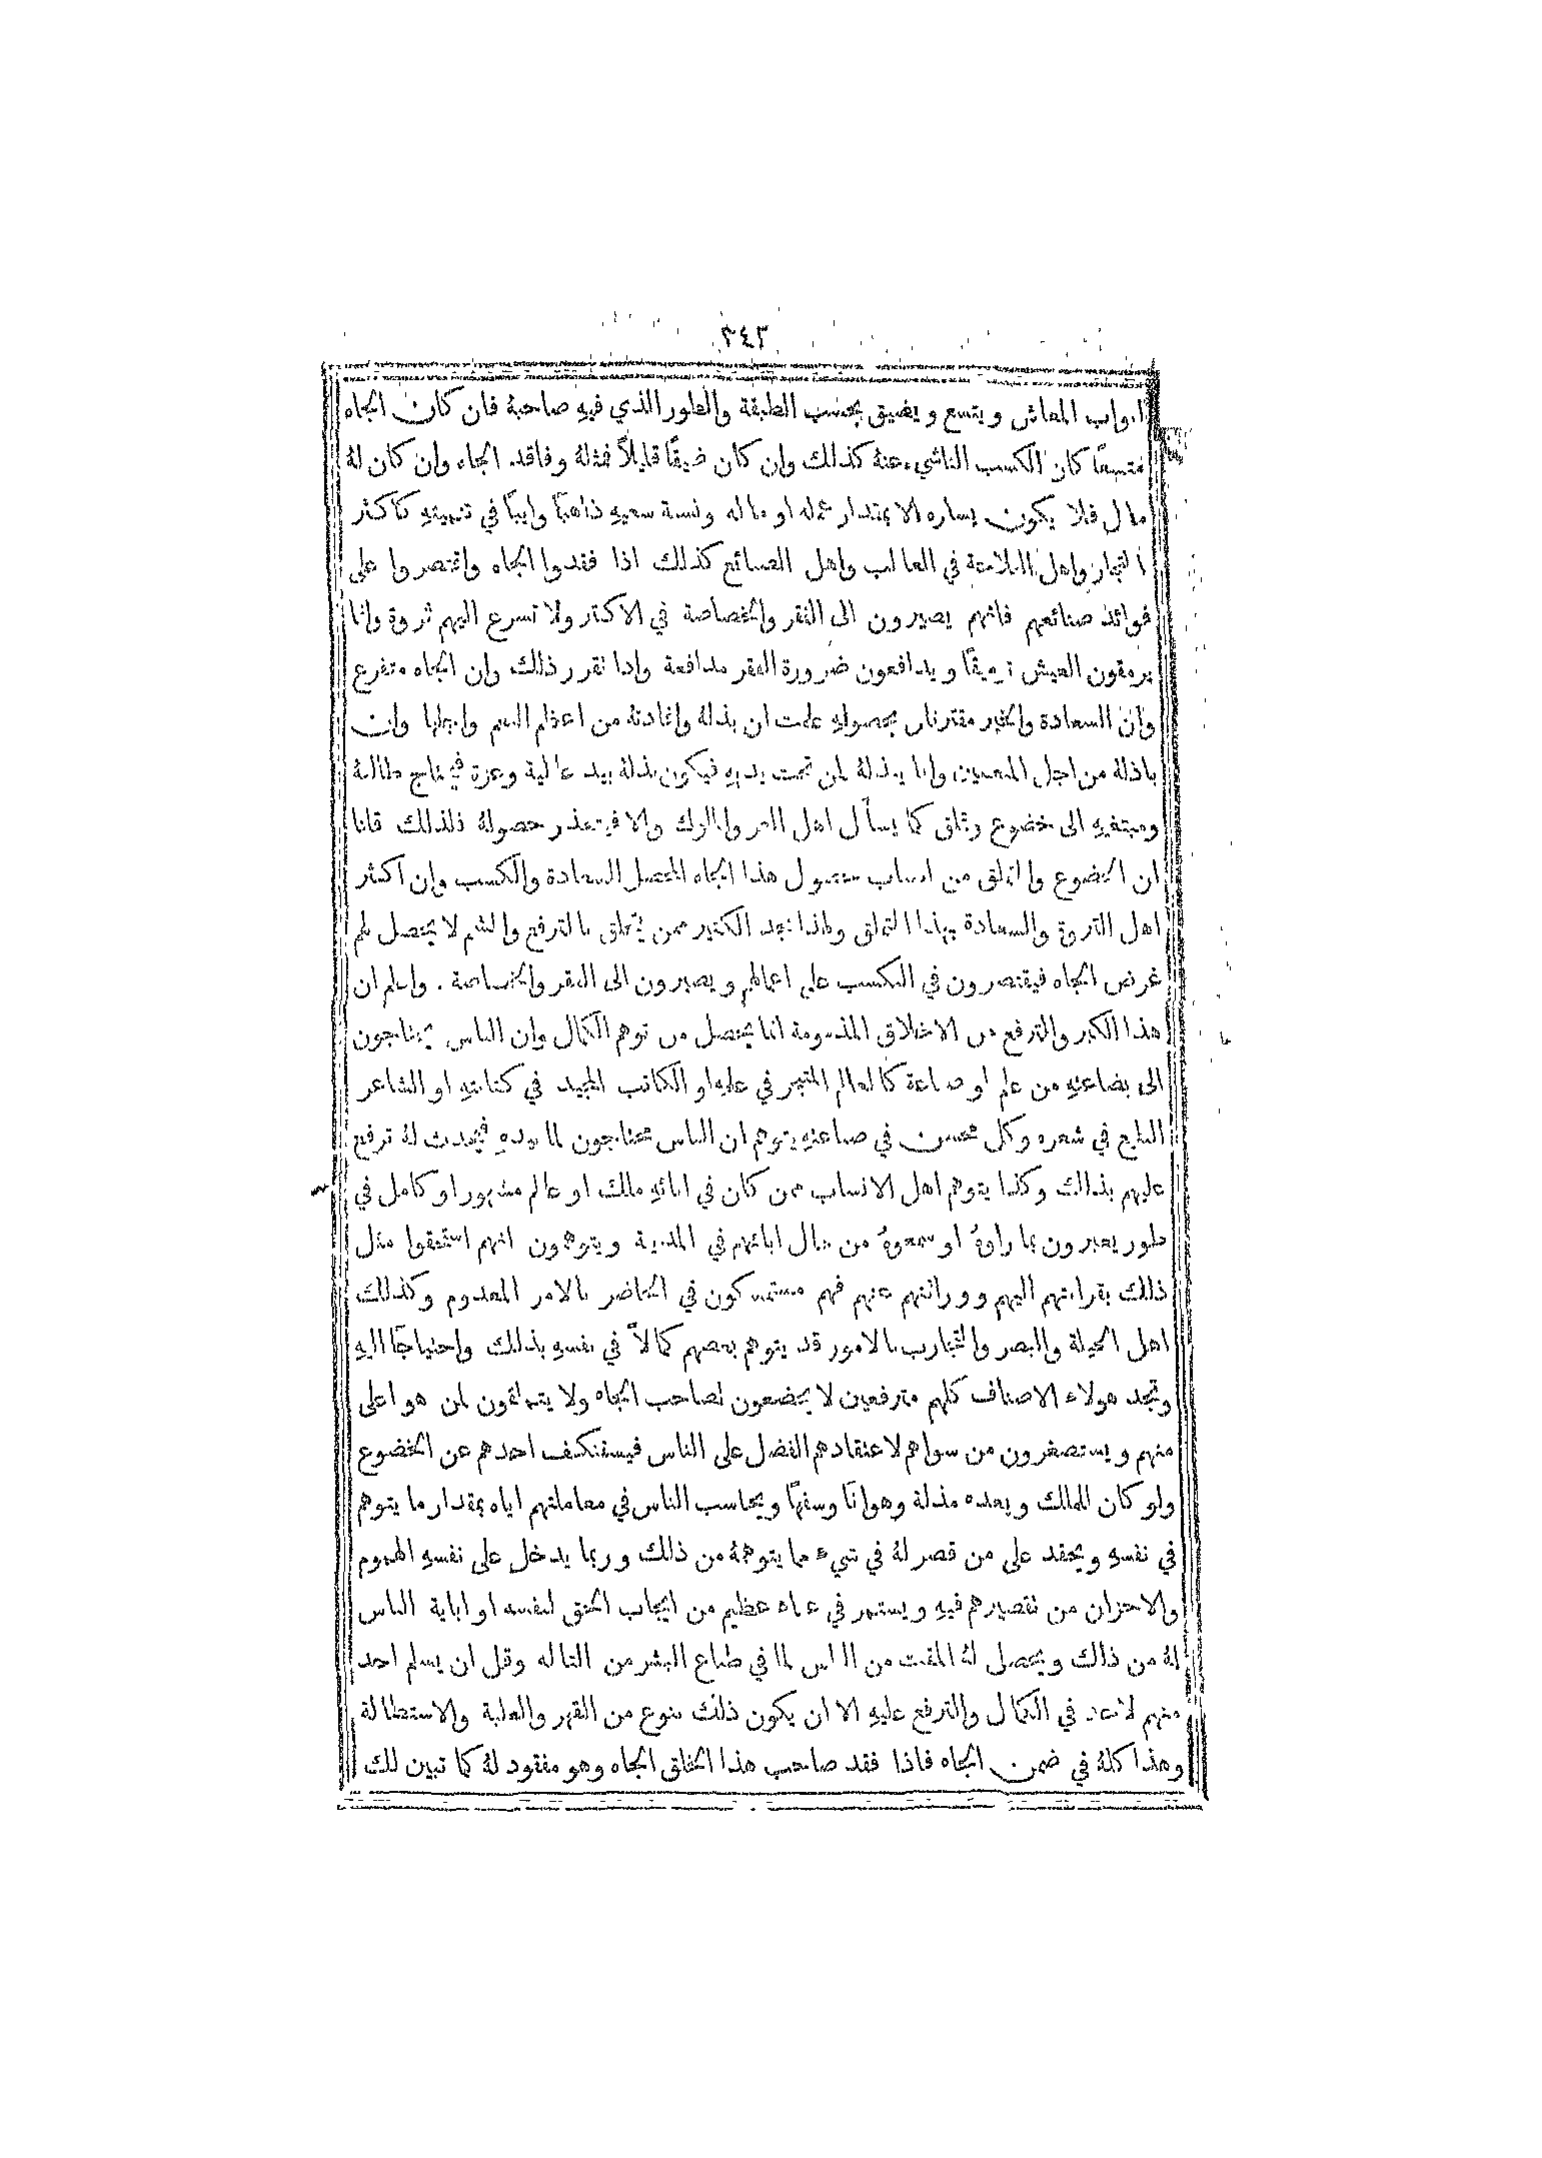 ٣٤٣
ابواب المعاش ويتسع ويضيق بحسب الطبقة والطور الذي فيهِ صاحبهُ فان كان الجاه
متسعًا كان الكسب الناشيء عنهُ كذلك وان كان ضيقًا قليلاً فمثلهُ وفاقد الجاه وان كان لهُ
مال فلا يكون يساره الا بمقدار عمله او ماله ونسبة سعيهِ ذاهبًا وايبًا في تنميتهِ كاكثر
التجار واهل الفلاحة في الغالب واهل الصنائع كذلك اذا فقدوا الجاه واقتصروا على
فوائد صنائعهم فانهم يصيرون الى الفقر والخصاصة في الاكثر ولا تسرع اليهم ثروة وانما
يرمقون العيش ترميقًا ويدافعون ضرورة الفقر مدافعة واذا تقرر ذلك وان الجاه متفرع
وان السعادة والخير مقترنان بحصولهِ علمت ان بذلهُ وافادتهُ من اعظم النعم واجلها وان
باذلهُ من اجل المنعمين وانما يبذلهُ لمن تحت يديهِ فيكون بذلهُ بيد عالية وعزة فيحتاج طالبهُ
ومبتغيهِ الى خضوع وتملق كما يسأل اهل العز والملوك والا فيتعذر حصولهُ فلذلك قلنا
ان الخضوع والتملق من اسباب حصول هذا الجاه المحصل للسعادة والكسب وان اكثر
اهل الثروة والسعادة بهذا التملق ولهذا نجد الكثير ممن يتخلق بالترفع والشمم لا يحصل لهم
غرض الجاه فيقتصرون في التكسب على اعمالهم ويصيرون الى الفقر والخصاصة . واعلم ان
هذا الكبر والترفع من الاخلاق المذمومة انما يحصل من توهم الكمال وان الناس يحتاجون
الى بضاعتهِ من علم او صناعة كالعالم المتبحر في علمهِ او الكاتب المجيد في كتابتهِ او الشاعر
البليغ في شعره وكل محسن في صناعتهِ يتوهم ان الناس محتاجون لما بيدهِ فيحدث لهُ ترفع
عليهم بذلك وكذا يتوهم اهل الانساب ممن كان في ابائهِ ملك او عالم مشهور او كامل في
طور يعبرون بما راوهُ او سمعوهُ من حال ابائهم في المدينة ويتوهمون انهم استحقوا مثل
ذلك بقرابتهم اليهم ووراثتهم عنهم فهم مستمسكون في الحاضر بالامر المعدوم وكذلك
اهل الحيلة والبصر والتجارب بالامور قد يتوهم بعضهم كمالاً في نفسهِ بذلك واحتياجًا اليهِ
وتجد هولاء الاصناف كلهم مترفعين لا يخضعون لصاحب الجاه ولا يتملقون لمن هو اعلى
منهم ويستصغرون من سواهم لاعتقادهم الفضل على الناس فيستنكف احدهم عن الخضوع
ولو كان للملك ويعده مذلة وهوانًا وسفهًا ويحاسب الناس في معاملتهم اياه بمقدار ما يتوهم
في نفسهِ ويحقد على من قصر لهُ في شيء مما يتوهمهُ من ذلك وربما يدخل على نفسهِ الهموم
والاحزان من تقصيرهم فيهِ ويستمر في عناء عظيم من ايجاب الحق لنفسه او اباية الناس
لهُ من ذلك ويحصل لهُ المقت من الناس لما في طباع البشر من التاله وقل ان يسلم احد
منهم لاحد في الكمال والترفع عليهِ الا ان يكون ذلك بنوع من القهر والغلبة والاستطالة
وهذا كلهُ في ضمن الجاه فاذا فقد صاحب هذا الخلق الجاه وهو مفقود لهُ كما تبين لك